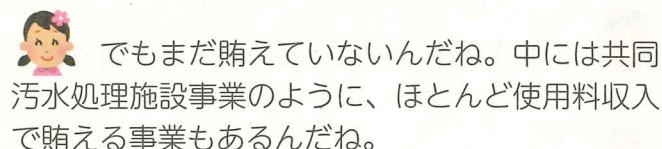 でもまだ賄えていないんだね。中には共同
汚水処理施設事業のように、ほとんど使用料収入
で賄える事業もあるんだね。